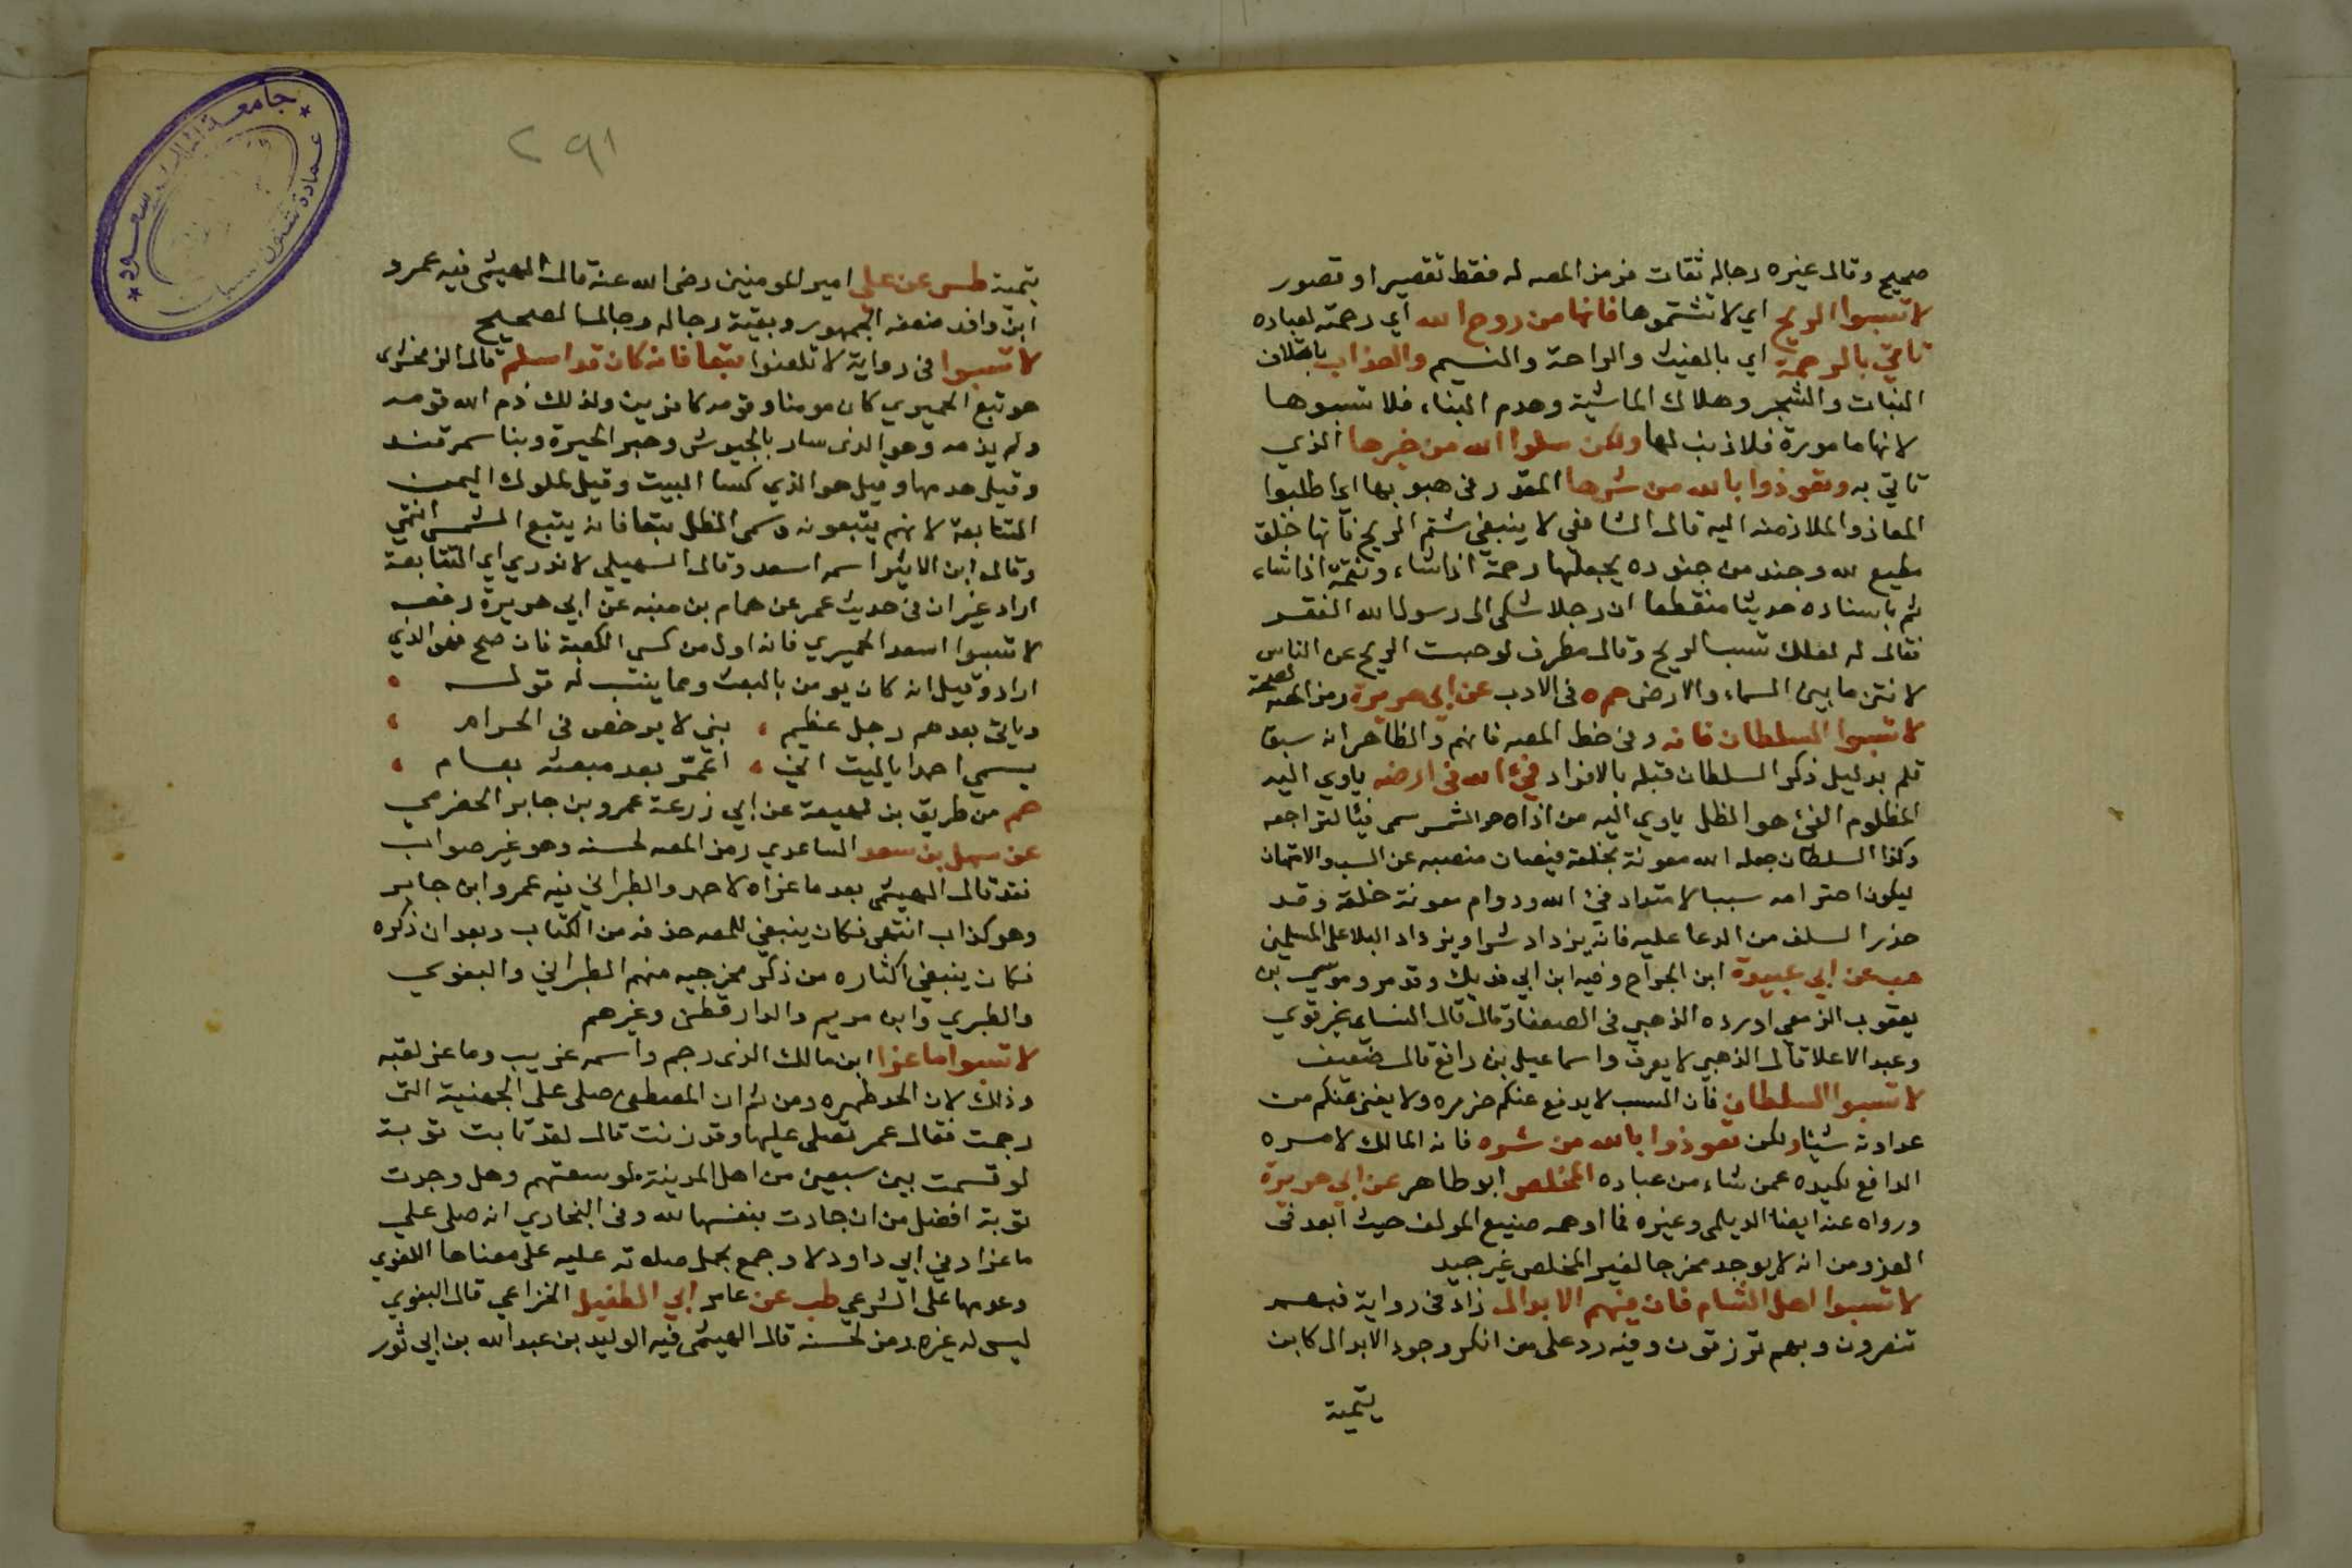 صحيح وقال غيره رجاله ثقات فرمز المصه له فقط تقصير او قصور
لا تسبوا الريح اي لا تشتموها فانها من روح الله اي رحمته لعباده
تاتي بالرحمة اي بالغيث والراحة والنسيم والعذاب باتلاف
النبات والشجر وهلاك الماشية وهدم البناء فلا تسبوها
لانها مامورة فلا ذنب لها ولكن سلوا الله من خيرها الذي
تاتي به وتعوذوا بالله من شرها المقدر في هبوبها اي اطلبوا
المعاذ والملاذ منه اليه قال الشافعي لا ينبغي شتم الريح فانها خلق
مطيع لله وجند من جنوده يجعلها رحمة اذا شاء ونقمة اذا شاء
ثم باسناده حديثا منقطعا ان رجلا شكى الى رسول الله الفقر
فقال له لعلك تسب الريح وقال مطرف لو حبست الريح عن الناس
لانتن ما بين السماء والارض حم ه في الادب عن ابي هريرة رمز المصه لصحته
لا تسبوا السلطان فانه وفي خط المصه فانهم والظاهر انه سبق
قلم بدليل ذكر السلطان قبله بالافراد فيء الله في ارضه ياوي اليه
المظلوم الفئ هو الظل ياوي اليه من اذاه حر الشمس سمى فيئا لتراجعه
وكذا السلطان جعله الله معونة لخلقه فيصان منصبه عن السب والامتهان
ليكون احترامه سببا لامتداد فئ الله ودوام معونة خلقه وقد
حذر السلف من الدعا عليه فانه يزداد شرا ويزداد البلا على المسلمين
هب عن ابي عبيدة ابن الجراح وفيه ابن ابي فديك وقد مر وموسى بن
يعقوب الزمعي اورده الذهبي في الضعفا وقال قال النساي غير قوي
وعبد الاعلا قال الذهبي لا يعرف واسماعيل بن رافع قال ضعيف
لا تسبوا السلطان فان السب لا يدفع عنكم ضرره ولا يغني عنكم من
عداوته شيئا ولكن تعوذوا بالله من شره فانه المالك لامره
الدافع لكيده عمن شاء من عباده المخلص ابو طاهر عن ابي هريرة
ورواه عنه ايضا الديلمي وغيره فما اوهمه صنيع المولف حيث ابعد في
العزو من انه لا يوجد مخرجا لغير المخلص غير جيد
لا تسبوا اهل الشام فان فيهم الابدال زاد في رواية فبهم
تنصرون وبهم ترزقون وفيه رد على من انكر وجود الابدال كابن
يتمية
٢٩١
يتمية طس عن علي امير المومنين رضى الله عنه قال الهيثمى فيه عمرو
ابن واقد ضعفه الجمهور وبقية رجاله رجال الصحيح
لا تسبوا في رواية لا تلعنوا تبعا فانه كان قد اسلم قال الزمخشرى
هو تبع الحميري كان مومنا وقومه كافرين ولذلك ذم الله قومه
ولم يذمه وهو الذى سار بالجيوش وحير الحيرة وبنا سمرقند
وقيل هدمها وقيل هو الذي كسا البيت وقيل لملوك اليمن
التتابعة لانهم يتبعون وسمى الظل تبعا فانه يتبع الشمس انتهي
وقال ابن الاثير اسمه اسعد وقال السهيلي لا ندري اي التتابعة
اراد غير ان في حديث عمر عن همام بن منبه عن ابي هريرة رفعه
لا تسبوا اسعد الحميري فانه اول من كسى الكعبة فان صح فهو الذي
اراد وقيل انه كان يومن بالبعث ومما ينسب له قوله
وياتي بعدهم رجل عظيم ، نبي لا يرخص في الحرام
يسمي احمدا يا ليت اني ، اعمر بعد مبعثه بعام
حم من طريق بن لهيعة عن ابي زرعة عمرو بن جابر الحضرمي
عن سهل بن سعد الساعدي رمز المصه لحسنه وهو غير صواب
فقد قال الهيثمى بعد ما عزاه لاحمد والطبراني فيه عمرو ابن جابر
وهو كذاب انتهى فكان ينبغي للمصه حذفه من الكتاب وبعد ان ذكره
فكان ينبغي اكثاره من ذكر مخرجيه منهم الطبراني والبغوي
والطبري وابن مريم والدارقطني وغيرهم
لا تسبوا ماعزا ابن مالك الذى رجم واسمه غريب وماعز لقبه
وذلك لان الحد طهره ومن ثم ان المصطفى صلى على الجهنية التى
رجمت فقال عمر تصلى عليها وقد زنت قال لقد تابت توبة
لو قسمت بين سبعين من اهل المدينة لوسعتهم وهل وجدت
توبة افضل من ان جادت بنفسها لله وفى البخاري انه صلى على
ماعز وفي ابي داود لا وجمع بحمل صلاته عليه على معناها اللغوي
وعدمها على الشرعي طب عن عامر ابي الطفيل الخزاعي قال البغوي
ليس له غيره رمز لحسنه قال الهيثمى فيه الوليد بن عبد الله بن ابي ثور
جامعة الملك سعود
عمادة شئون المكتبات